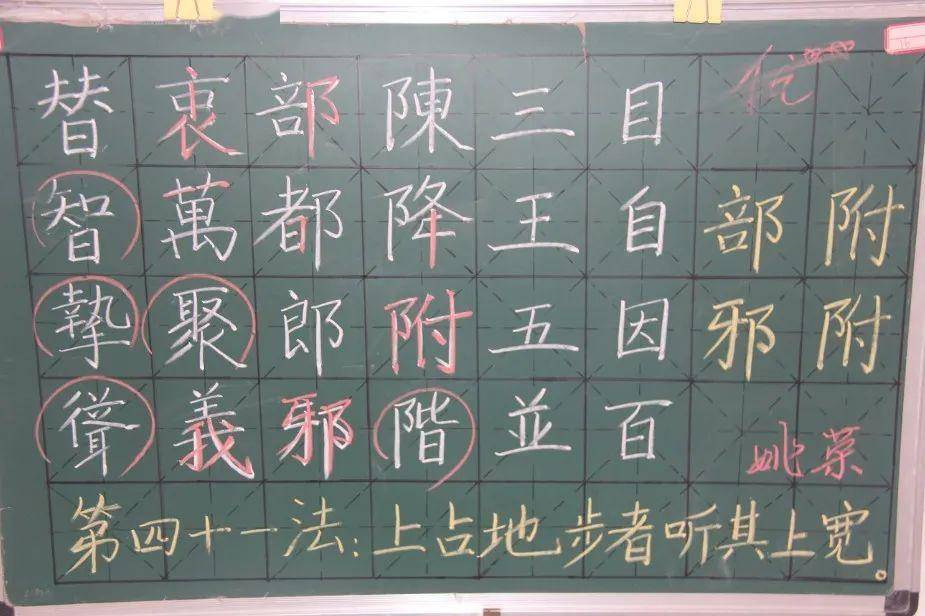 替衷部陳三目优
智萬都降王自部附
執聚郎附五因邪附
聳義邪階並百姚荣
第四十一法：上占地步者听其上宽。